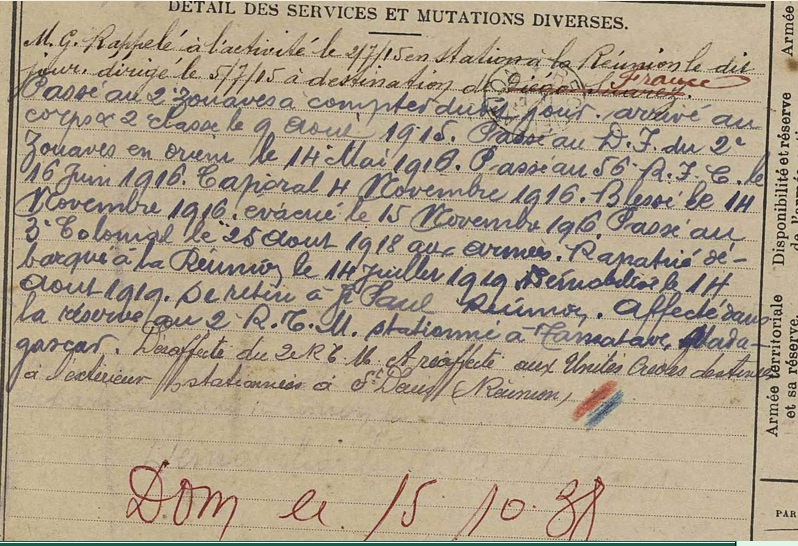 DÉTAIL DES SERVICES ET MUTATIONS DIVERSES.
M. G. Rappelé à l'activité le 2/7/15 en station à la Réunion le dit
jour. dirigé le 5/7/15 à destination de Diégo Suarez. France
Passé au 2e zouaves à compter du jour. arrivé au
corps 2 classe le 9 Août 1915. Passé au D.F. du 2e
Zouaves en orient le 14 Mai 1916. Passé au 56 R.I.C. le
16 Juin 1916. Caporal 4 Novembre 1916. Blessé le 14
Novembre 1916. évacué le 15 Novembre 1916. Passé au
3e Colonial le 25 août 1918 aux armées. Rapatrié dé-
barqué à la Réunion le 14 Juillet 1919. Démobilisé le 14
août 1919. Se retire à St Paul Réunion. Affecté dans
la réserve au 2 R.T.M. stationné à Tamatave, Mada-
gascar. Désaffecté du 2e R.T.M. et réaffecté aux Unités Créoles destinées
à l'extérieur stationnées à St Denis (Réunion)
DOM le 15. 10. 38
Armée territoriale
et sa réserve.
Disponibilité et réserve
Armée
PAR